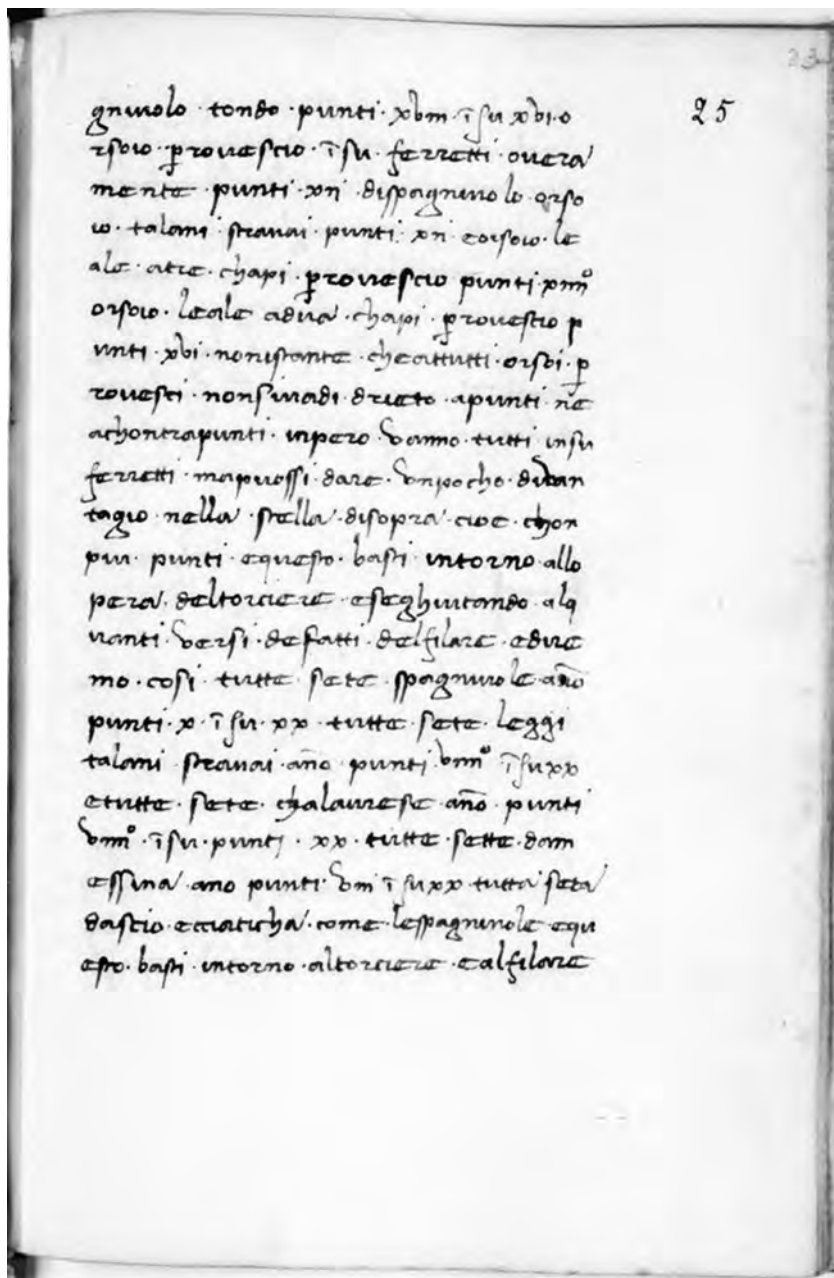 25
gniuolo · tondo · punti · xviii · ī su xvi · o
rsoio · ꝑrouescio · ī su · ferretti · ouera
mente · punti · xii · dispagniuolo orso
io · talani · strauai · punti · xii · eorsoio · le
ale · atre · chapi · ꝑrouescio punti · xiiiiº
orsoio · leale adua · chapi · ꝑrouescio p
unti · xvi · nonistante · cheattutti · orsoi · ꝑ
rouesci · nonsiuadi · drieto · apunti · ne
achontrapunti · inpero · vanno · tutti · insu
ferretti · mapuossi · dare · vnpocho · diuan
tagio · nella · stella · disopra · cioe · chon
piu · punti · equesto · basti · intorno · allo
pera · deltorciere · eseghuitando · alq
uanti · versi · defatti · delfilare · edire
mo · cosi · tutte · sete · spagniuole · ano
punti · x · ī su · xx · tutte · sete · leggi
talani · strauai · ano · punti · viiiiº · ī su xx
etutte · sete · chalaurese · ano · punti
viiiiº · ī su · punti · xx · tutte · sette · dam
essina · ano punti · viii ī su xx · tutta seta
dascio · ecciaticha · come · lespagniuole · equ
esto · basti · intorno · altorciere · ealfilare